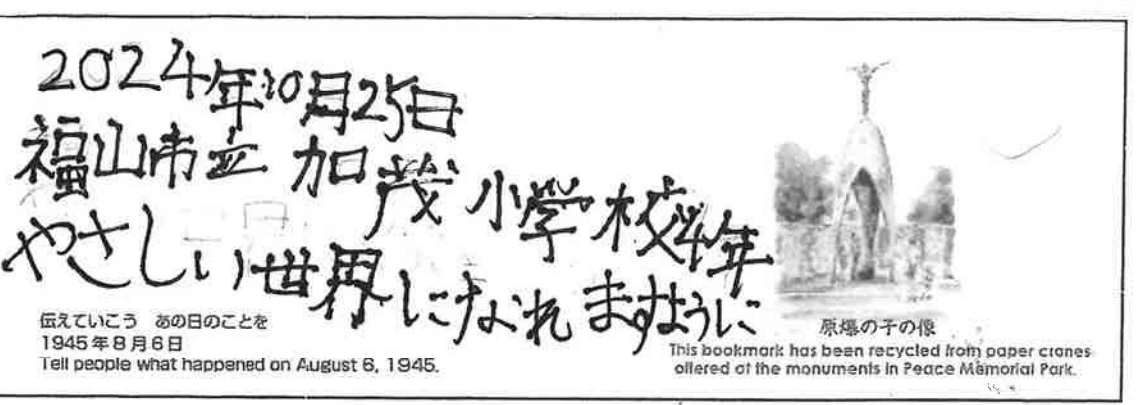 2024年10月25日
福山市立 加茂小学校4年
やさしい世界になれますように
伝えていこう あの日のことを
1945年8月6日
Tell people what happened on August 6, 1945.
原爆の子の像
This bookmark has been recycled from paper cranes
offered at the monuments in Peace Memorial Park.